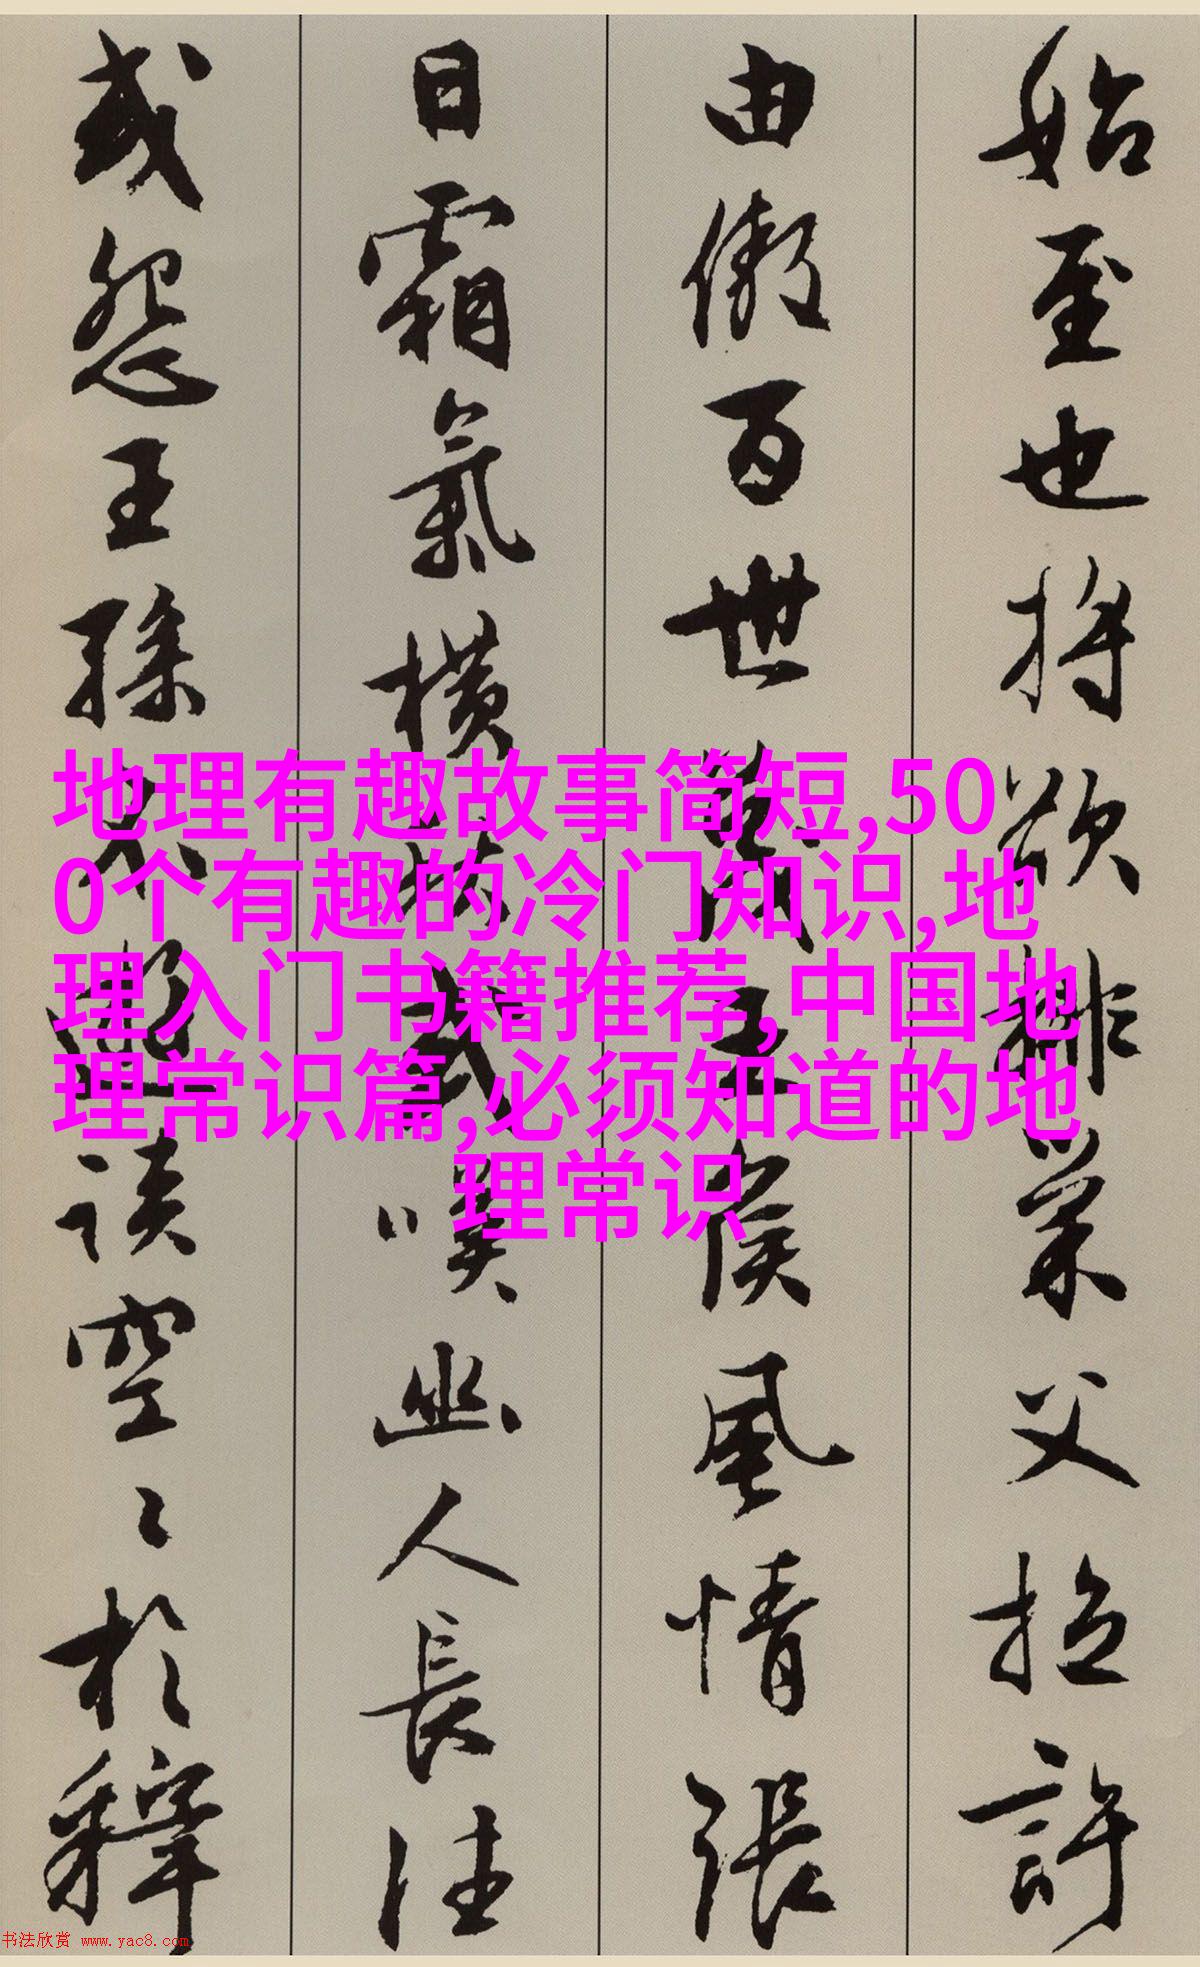 始至也將欲排巢父拉許
由傲百世蔑王侯風情張
日霜氣橫秋或嘆幽人長往
或怨王孫不遊談空〻於釋
地理有趣故事简短,50
0个有趣的冷门知识,地
理入门书籍推荐,中国地
理常识篇,必须知道的地
理常识
书法欣赏 www.yac8.com